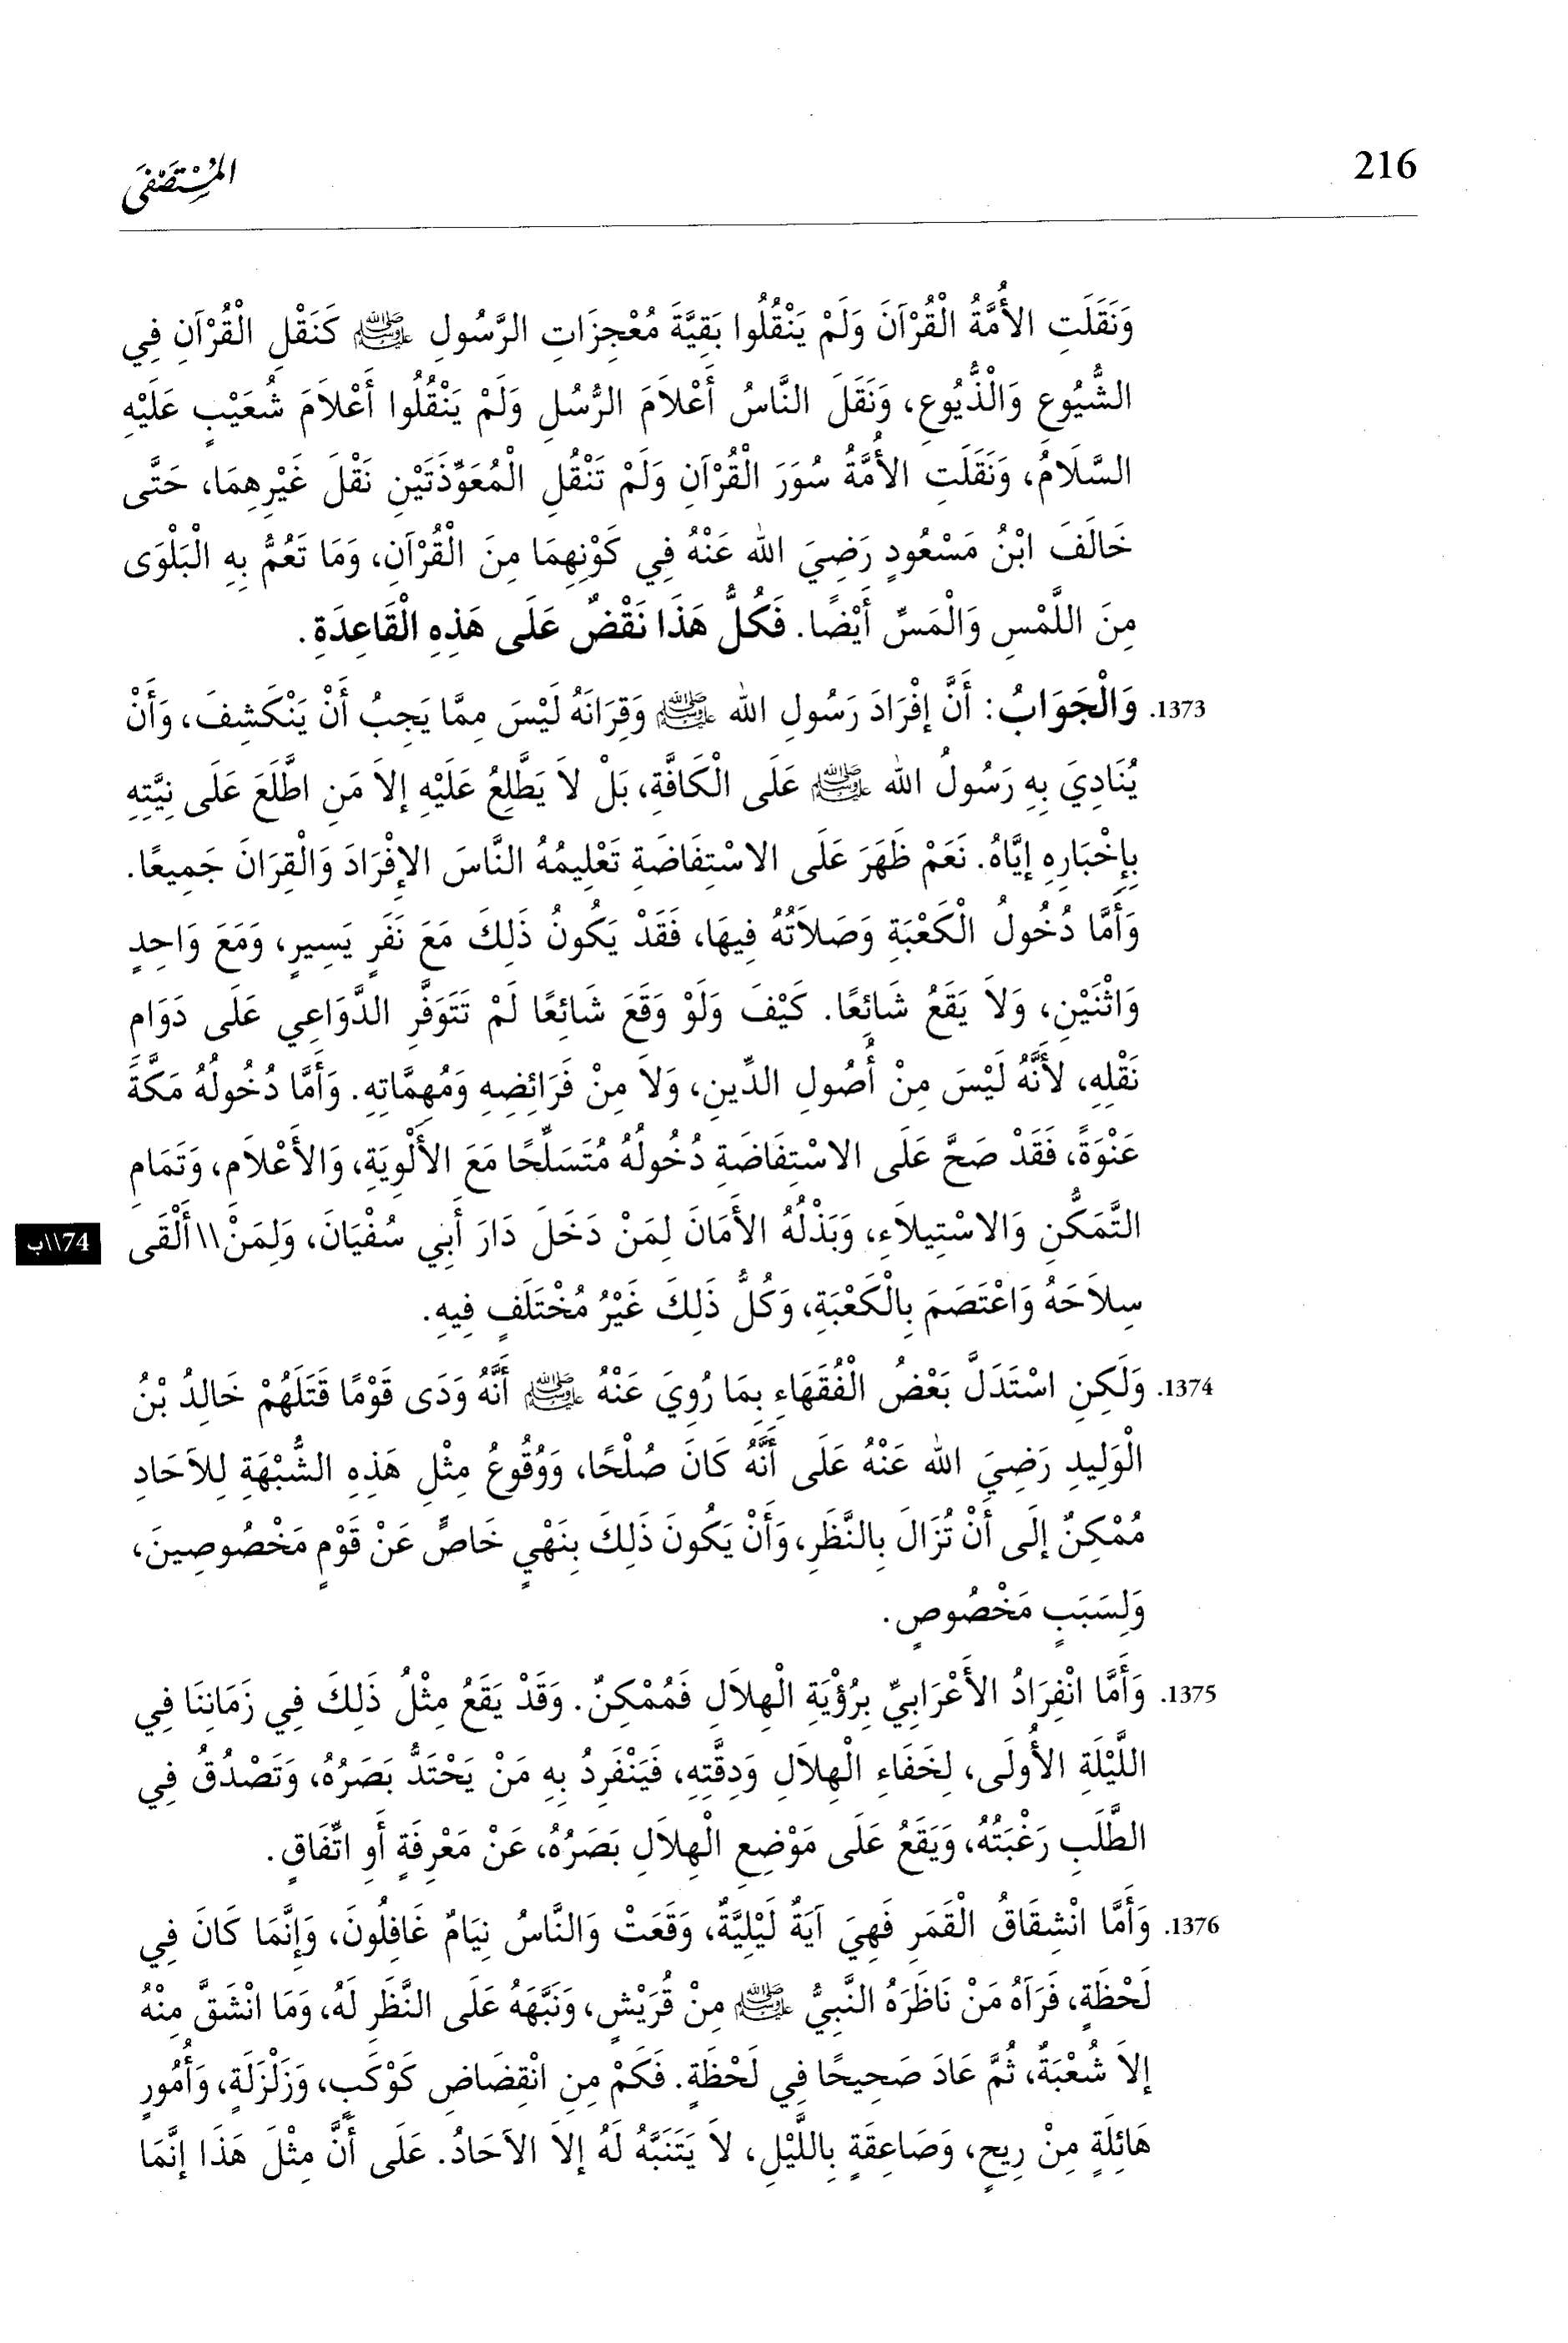 216
المُسْتَصْفَى
وَنَقَلَتِ الأُمَّةُ الْقُرْآنَ وَلَمْ يَنْقُلُوا بَقِيَّةَ مُعْجِزَاتِ الرَّسُولِ ﷺ كَنَقْلِ الْقُرْآنِ فِي
الشُّيُوعِ وَالْذُّيُوعِ، وَنَقَلَ النَّاسُ أَعْلاَمَ الرُّسُلِ وَلَمْ يَنْقُلُوا أَعْلاَمَ شُعَيْبٍ عَلَيْهِ
السَّلَامُ، وَنَقَلَتِ الأُمَّةُ سُوَرَ الْقُرْآنِ وَلَمْ تَنْقُلِ الْمُعَوِّذَتَيْنِ نَقْلَ غَيْرِهِمَا، حَتَّى
خَالَفَ ابْنُ مَسْعُودٍ رَضِيَ الله عَنْهُ فِي كَوْنِهِمَا مِنَ الْقُرْآنِ، وَمَا تَعُمُّ بِهِ الْبَلْوَى
مِنَ اللَّمْسِ وَالْمَسِّ أَيْضًا. فَكُلُّ هَذَا نَقْضٌ عَلَى هَذِهِ الْقَاعِدَةِ.
1373. وَالْجَوَابُ: أَنَّ إِفْرَادَ رَسُولِ الله ﷺ وَقِرَانَهُ لَيْسَ مِمَّا يَجِبُ أَنْ يَنْكَشِفَ، وَأَنْ
يُنَادِيَ بِهِ رَسُولُ الله ﷺ عَلَى الْكَافَّةِ، بَلْ لاَ يَطَّلِعُ عَلَيْهِ إِلاَ مَنِ اطَّلَعَ عَلَى نِيَّتِهِ
بِإِخْبَارِهِ إِيَّاهُ. نَعَمْ ظَهَرَ عَلَى الاسْتِفَاضَةِ تَعْلِيمُهُ النَّاسَ الإِفْرَادَ وَالْقِرَانَ جَمِيعًا.
وَأَمَّا دُخُولُ الْكَعْبَةِ وَصَلاَتُهُ فِيهَا، فَقَدْ يَكُونُ ذَلِكَ مَعَ نَفَرٍ يَسِيرٍ، وَمَعَ وَاحِدٍ
وَاثْنَيْنِ، وَلاَ يَقَعُ شَائِعًا. كَيْفَ وَلَوْ وَقَعَ شَائِعًا لَمْ تَتَوَفَّرِ الدَّوَاعِي عَلَى دَوَامِ
نَقْلِهِ، لأَنَّهُ لَيْسَ مِنْ أُصُولِ الدِّينِ، وَلاَ مِنْ فَرَائِضِهِ وَمُهِمَّاتِهِ. وَأَمَّا دُخُولُهُ مَكَّةَ
عَنْوَةً، فَقَدْ صَحَّ عَلَى الاسْتِفَاضَةِ دُخُولُهُ مُتَسَلِّحًا مَعَ الأَلْوِيَةِ، وَالأَعْلَامِ، وَتَمَامِ
التَّمَكُّنِ وَالاسْتِيلاَءِ، وَبَذْلُهُ الأَمَانَ لِمَنْ دَخَلَ دَارَ أَبِي سُفْيَانَ، وَلِمَنْ\\أَلْقَى
74\\ب
سِلاَحَهُ وَاعْتَصَمَ بِالْكَعْبَةِ، وَكُلُّ ذَلِكَ غَيْرُ مُخْتَلَفٍ فِيهِ.
1374. وَلَكِنِ اسْتَدَلَّ بَعْضُ الْفُقَهَاءِ بِمَا رُوِيَ عَنْهُ ﷺ أَنَّهُ وَدَى قَوْمًا قَتَلَهُمْ خَالِدُ بْنُ
الْوَلِيدِ رَضِيَ الله عَنْهُ عَلَى أَنَّهُ كَانَ صُلْحًا، وَوُقُوعُ مِثْلِ هَذِهِ الشُّبْهَةِ لِلآحَادِ
مُمْكِنٌ إِلَى أَنْ تُزَالَ بِالنَّظَرِ، وَأَنْ يَكُونَ ذَلِكَ بِنَهْيٍ خَاصٍّ عَنْ قَوْمٍ مَخْصُوصِينَ،
وَلِسَبَبٍ مَخْصُوصٍ.
1375. وَأَمَّا انْفِرَادُ الأَعْرَابِيِّ بِرُؤْيَةِ الْهِلاَلِ فَمُمْكِنٌ. وَقَدْ يَقَعُ مِثْلُ ذَلِكَ فِي زَمَانِنَا فِي
اللَّيْلَةِ الأُولَى، لِخَفَاءِ الْهِلاَلِ وَدِقَّتِهِ، فَيَنْفَرِدُ بِهِ مَنْ يَحْتَدُّ بَصَرُهُ، وَتَصْدُقُ فِي
الطَّلَبِ رَغْبَتُهُ، وَيَقَعُ عَلَى مَوْضِعِ الْهِلاَلِ بَصَرُهُ، عَنْ مَعْرِفَةٍ أَوِ اتِّفَاقٍ.
1376. وَأَمَّا انْشِقَاقُ الْقَمَرِ فَهِيَ آيَةٌ لَيْلِيَّةٌ، وَقَعَتْ وَالنَّاسُ نِيَامٌ غَافِلُونَ، وَإِنَّمَا كَانَ فِي
لَحْظَةٍ، فَرَآهُ مَنْ نَاظَرَهُ النَّبِيُّ ﷺ مِنْ قُرَيْشٍ، وَنَبَّهَهُ عَلَى النَّظَرِ لَهُ، وَمَا انْشَقَّ مِنْهُ
إِلاَ شُعْبَةٌ، ثُمَّ عَادَ صَحِيحًا فِي لَحْظَةٍ. فَكَمْ مِنِ انْقِضَاضِ كَوْكَبٍ، وَزَلْزَلَةٍ، وَأُمُورٍ
هَائِلَةٍ مِنْ رِيحٍ، وَصَاعِقَةٍ بِاللَّيْلِ، لاَ يَتَنَبَّهُ لَهُ إِلاَ الآحَادُ. عَلَى أَنَّ مِثْلَ هَذَا إِنَّمَا